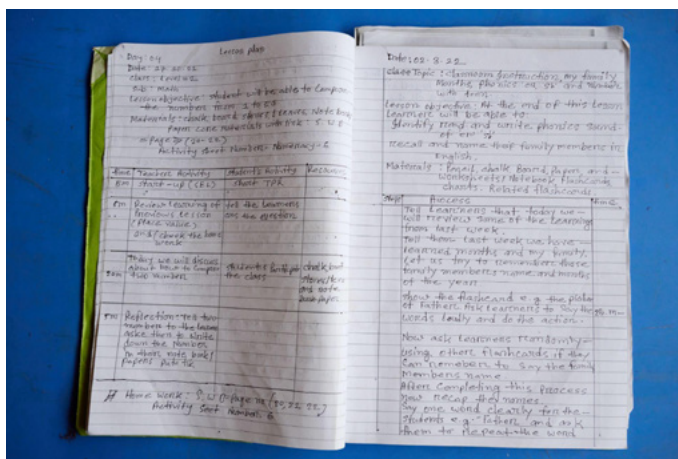 Lesson plan
Day: 04
Date: 27-20-22
class: Level-2
Sub: Math
Lesson objective: Student will be able to Compare
the numbers from 1 to 50
Materials: chalk board stones/Leaves Note book
Paper cone materials with stick: S.W.B
Activity Sheet Number: Numeracy-6
Time Teacher's Activity Student's Activity Resources
5m start-up (SEL) short TPR
5m Review Learning of tell the Learners
Previous Lesson ans the question.
(Place value)
and check the home
work
Today we will discuss
about how to Compare students participate chalk board
two numbers the class stones/
and note
book papers
5m Reflection: Tell two
numbers to the Learners
aske them to Write
down the Number
in there note book/
Papers
# Home Work: S.W.B-page
Activity Sheet Number: 6
Date: 02.8.22
class Topic: classroom Instruction, my family
Months, phonics and Numbers
with
Lesson objective: At the end of this Lesson
Learners will be able to:
Identify read and write phonics sound
of
Recall and name their family members in
English.
Materials: Pencil, chalk Board, papers, and
worksheets/Notebook Flashcards
chants. Related flashcards
Step Process Time
Tell Learners that today we
will review some of the Learning
from last week.
Tell them last week we have
learned months and my family.
Let us try to remember those
family members name and months
of the year
show the flashcard e.g. the picture
of Father. Ask Learners to Say the
words loudly and do the action.
Now ask Learners randomly
using others flashcards if they
can remember to say the family
members name
After completing this Process
now recap the names.
Say one word clearly for the
students e.g: Father and ask
them to Repeat the word